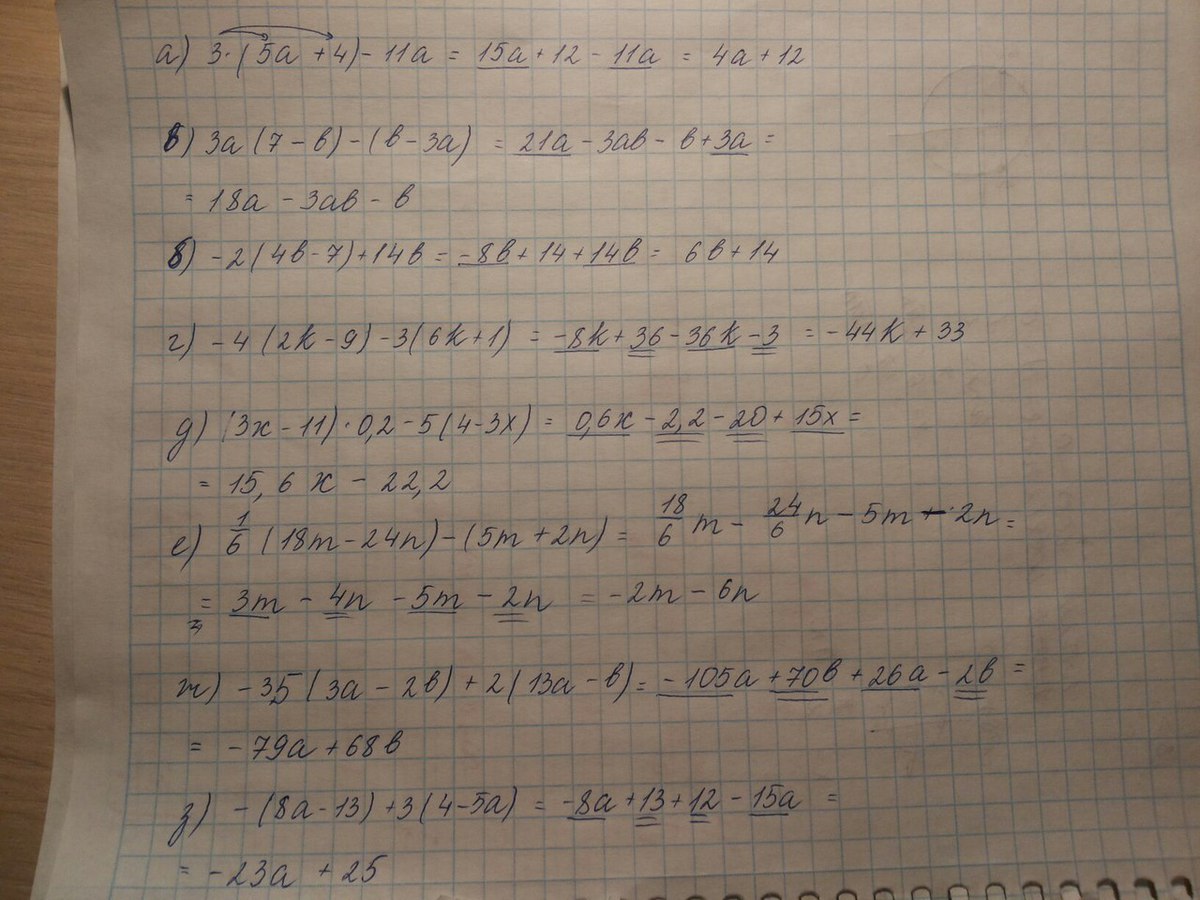 а) 3·(5a + 4) - 11a = 15a + 12 - 11a = 4a + 12
в) 3a (7 - в) - (в - 3a) = 21a - 3aв - в + 3a =
= 18a - 3aв - в
б) -2(4в - 7) + 14в = -8в + 14 + 14в = 6в + 14
г) -4 (2k - 9) - 3(6k + 1) = -8k + 36 - 36k - 3 = -44k + 33
д) (3x - 11)·0,2 - 5(4 - 3x) = 0,6x - 2,2 - 20 + 15x =
= 15,6x - 22,2
е) 1/6 (18m - 24n) - (5m + 2n) = 18/6 m - 24/6 n - 5m - 2n =
= 3m - 4n - 5m - 2n = -2m - 6n
ж) -35 (3a - 2в) + 2(13a - в) = -105a + 70в + 26a - 2в =
= -79a + 68в
з) -(8a - 13) + 3(4 - 5a) = -8a + 13 + 12 - 15a =
= -23a + 25